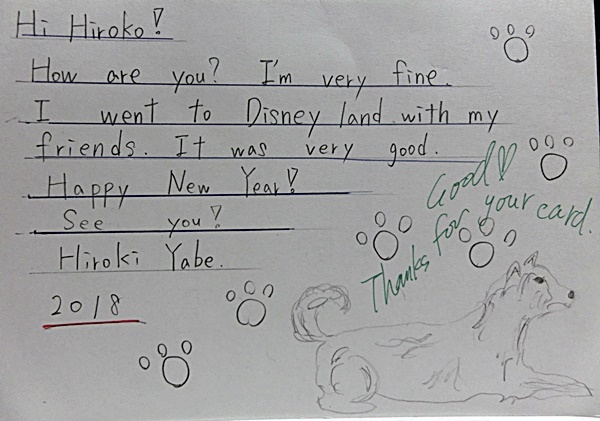 Hi Hiroko!
How are you? I'm very fine.
I went to Disney land with my
friends. It was very good.
Happy New Year!
See you?
Hiroki Yabe.
2018
Good♡
Thanks for your card.